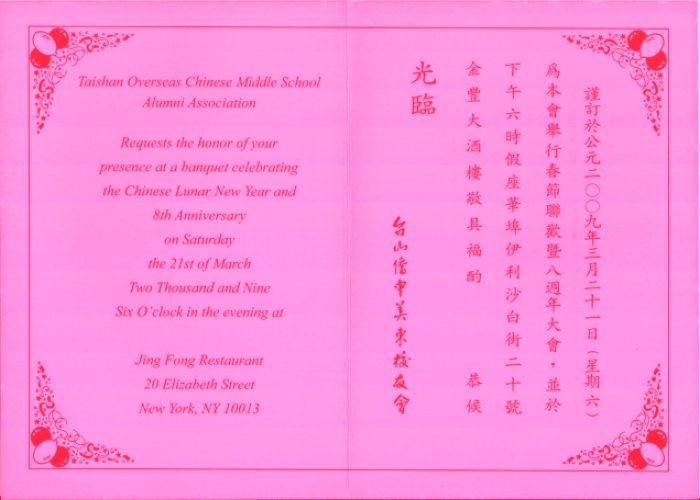 Taishan Overseas Chinese Middle School
Alumni Association
Requests the honor of your
presence at a banquet celebrating
the Chinese Lunar New Year and
8th Anniversary
on Saturday
the 21st of March
Two Thousand and Nine
Six O'clock in the evening at
Jing Fong Restaurant
20 Elizabeth Street
New York, NY 10013
謹訂於公元二〇〇九年三月二十一日(星期六)
爲本會舉行春節聯歡暨八週年大會,並於
下午六時假座華埠伊利沙白街二十號
金豐大酒樓敬具福酌 恭候
光臨
台山僑中美東校友會